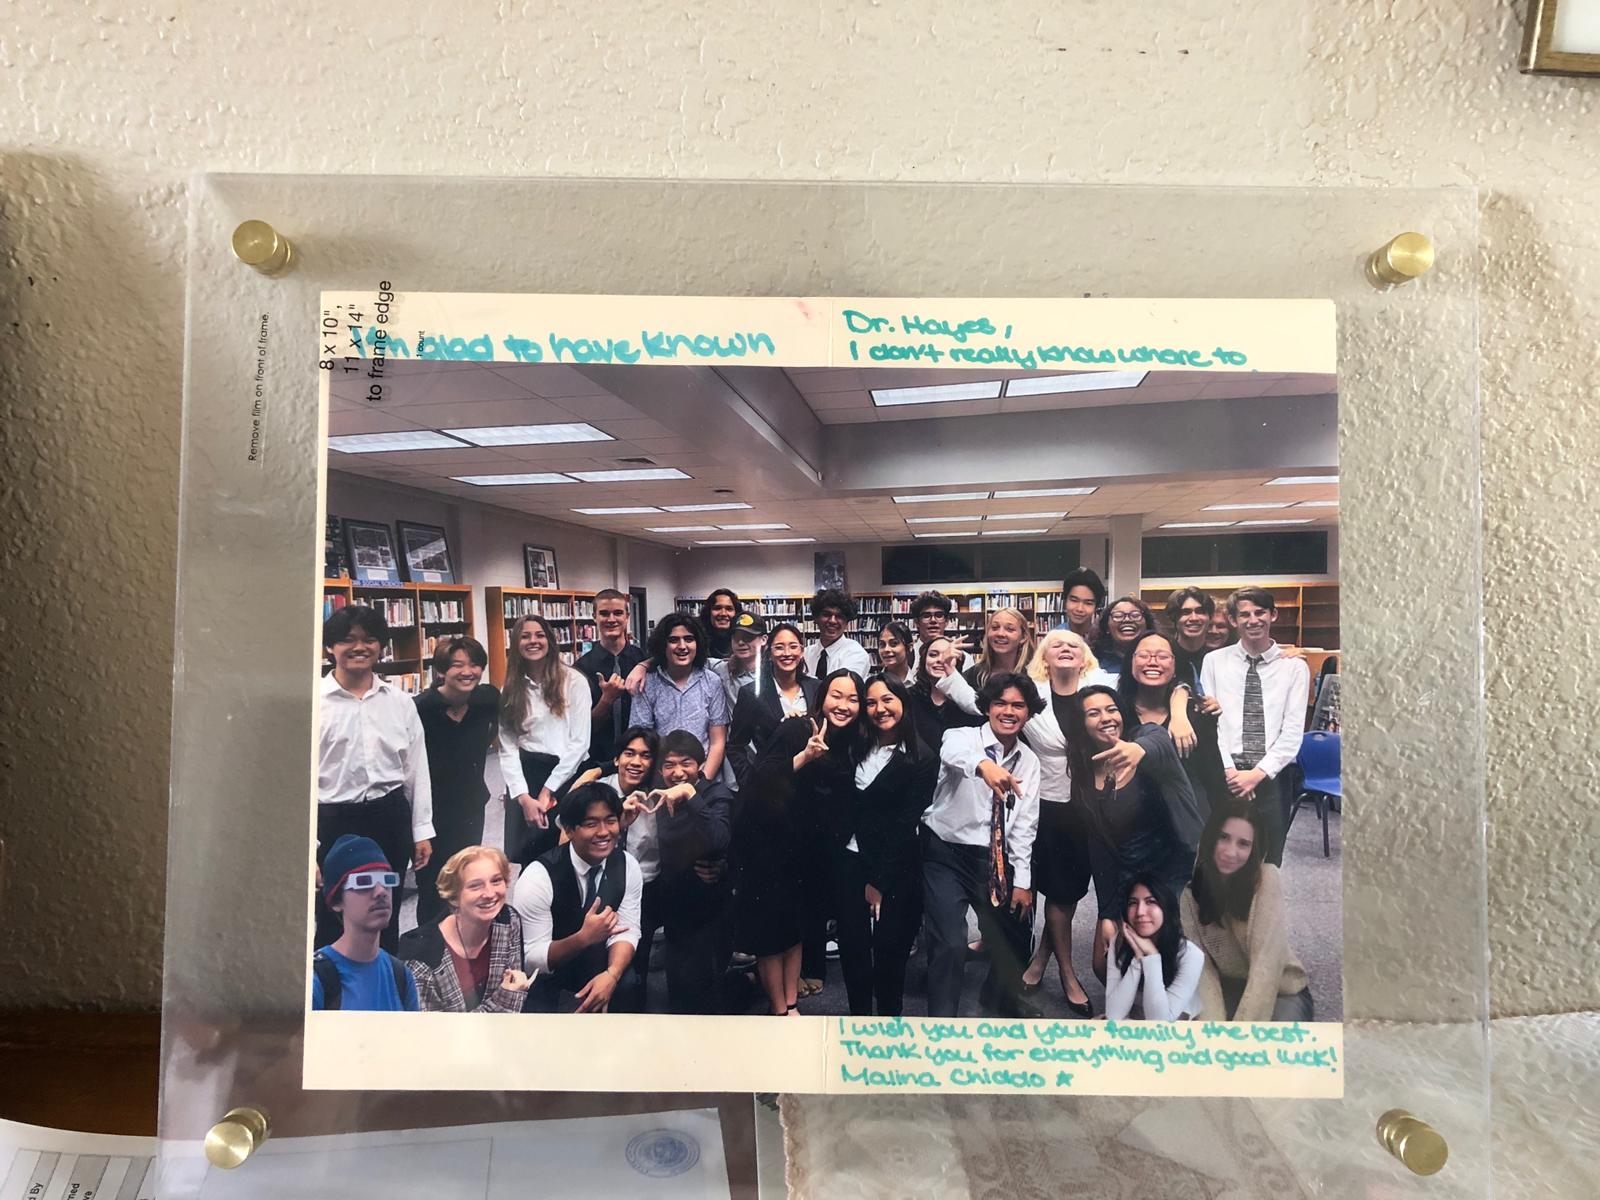 Remove film on front of frame.
8 x 10",
11 x 14"
to frame edge
1 count
I'm glad to have known
Dr. Hayes,
I don't really know where to
I wish you and your family the best.
Thank you for everything and good luck!
Malina Chiddo ★